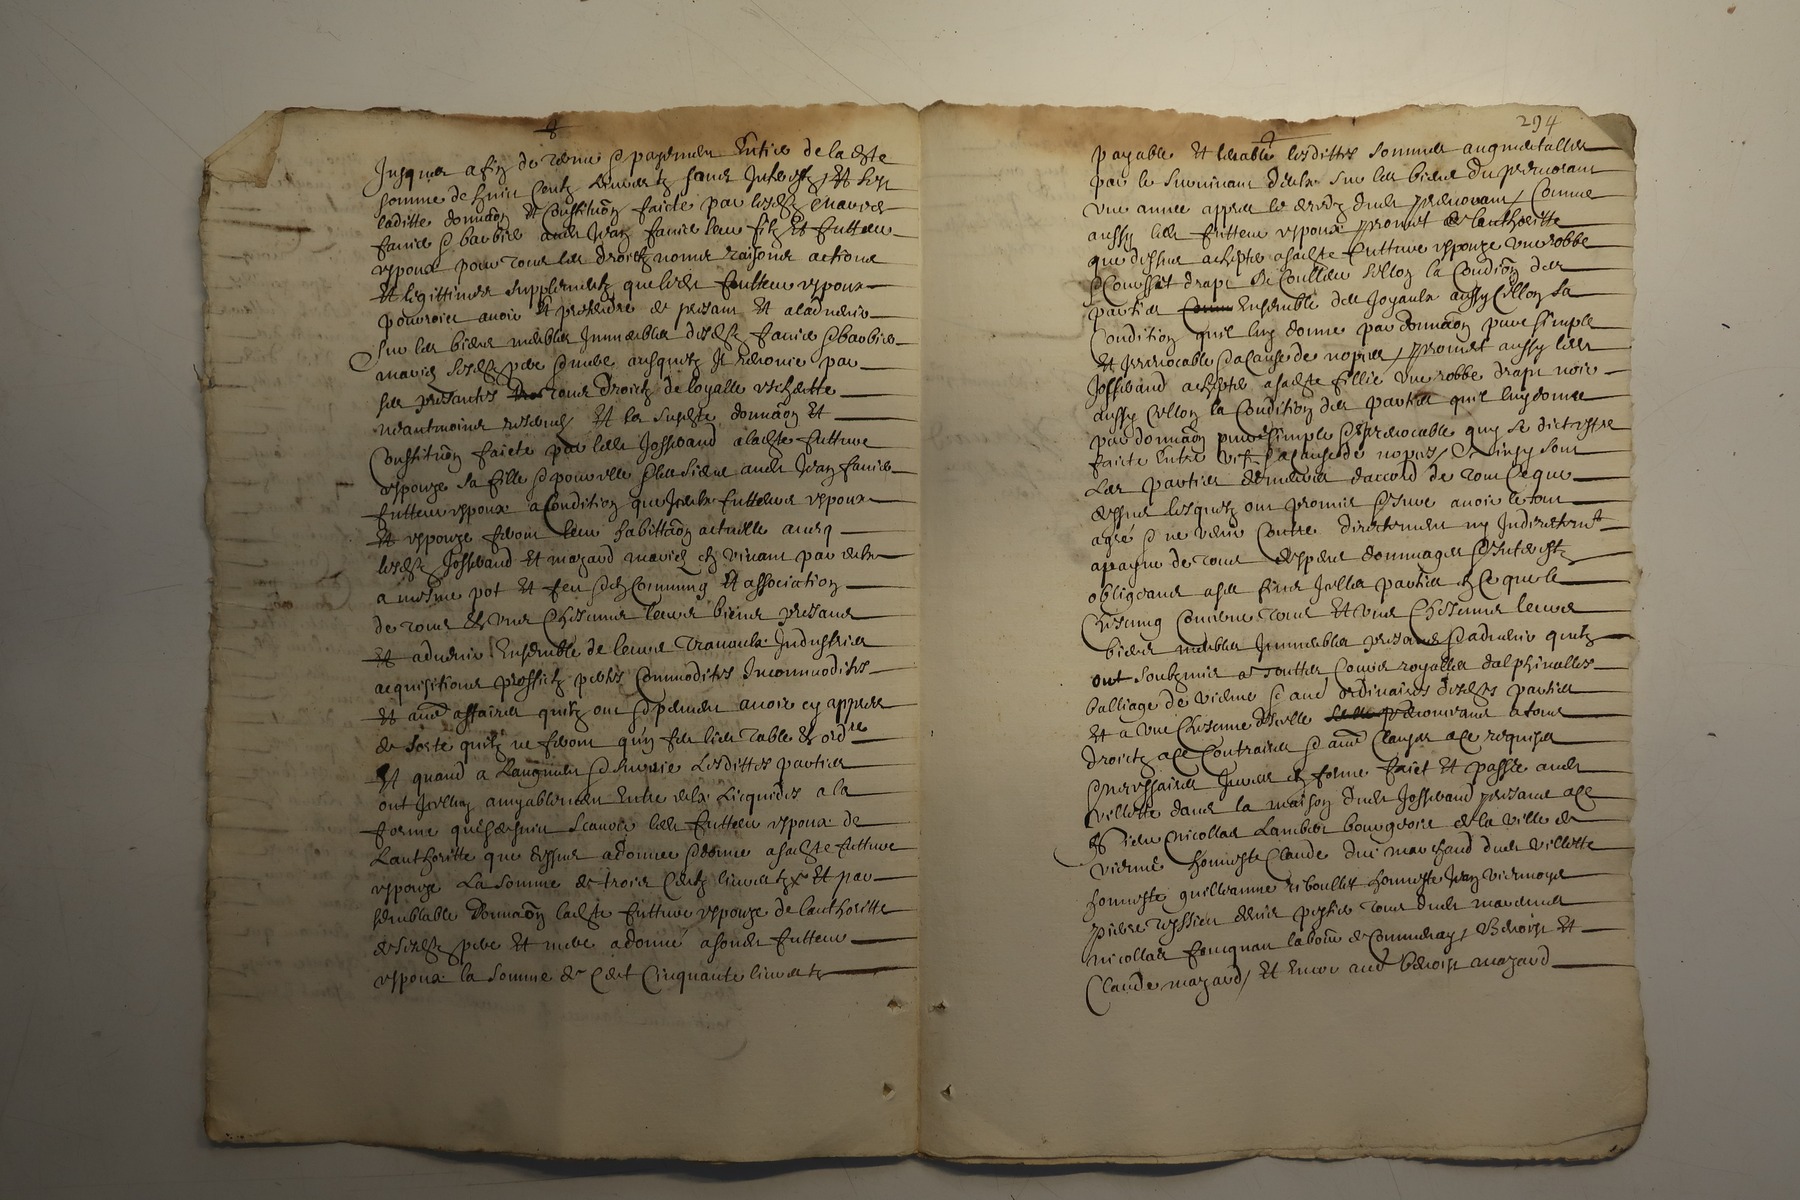 Jusques a fin de terme & payement Entier de la dste
somme de huict Centz livres tz sans Interestz Et sus
laditte donnaõn Et Constituõn faicte par lesdts maries
favier & barbier audt Jean favier leur filz Et futteur
espoux pour tous ses droictz noms raisons actions
Et legittimes supplementz que ledt futteur espoux
pouvoiet avoir Et prethendre de presant Et a ladvenir
sur les biens meubles Immeubles desdts favier & barbier
maries sesdts pere & mere ausquelz Il Renonce par
ses presantes tous droictz de loyalle escheutte
neantmoins reservés Et la susdste donnaõn Et
Constituõn faicte par ledt Josserand a ladste futture
espouze sa fille & pour elle & les siens audt Jean favier
futteur espoux a Condition que lesdts futteurs espoux
Et espouze feront leur habittaõn actuelle avecq
lesdts Josserand Et mazard maries Et vivant par entre
a mesme pot Et feu & En Commung Et association
de tous Et uns Chescuns leurs biens presans
Et advenir Ensemble de leurs travaulx Industries
acquisitions proffictz pertes Commodites Incommodites
Et autres affaires quilz ont & peuvent avoir cy appres
de sorte quilz ne feront qu'un feu lict table Et ordre
Et quand a Laugment & survie Lesdittes parties
ont Icelluy amyablement Entre eulx Licquides a la
forme quisensuict Scavoir ledt futteur espoux de
Lauthoritte que dessus a donne & donne a sadste futture
espouze La somme de trois Centz livres tz Et par
semblable donnaõn ladste futture espouze de lauthoritte
de sesdts pere Et mere a donné a sondt futteur
espoux la somme de Cent Cinquante livres tz
294
payable Et lesdittes sommes augmentalles
par le survivant d'eulx sur les biens du premorant
une annee appres le decedz dudt premorant / Comme
aussy ledt futteur espoux promet de lauthoritte
que dessus achepter a sadste futture espouze une robbe
& Corsset drapt de Coulleur sellon la Condiõn des
parties Ensemble des Joyaulx aussy sellon sa
Condition quil luy donne par donnaõn pure simple
Et Irrevocable & a Cause de nopces / promet aussy ledt
Josserand achepter a sadste fillie une robbe drapt noir
aussy sellon la Condition des parties quil luy donne
par donnaõn pure simple & Irrevocable quy se dict estre
faicte Entre vifz & a Cause de nopces / & Ainsy sont
Les parties demeures daccord de tout Ce que
dessus lesquelz ont promis & Jure avoir le tout
agreé & ne venir Contre directement ny Indirectemt
a payne de tous despens dommages & Interestz
obligeans a ses fins Icelles parties En Ce que le
Chescung Concerne tous Et uns Chescuns leurs
biens meubles Immeubles presans & advenir quilz
ont soubzmis a touttes Cours royalles dalphinalles
balliage de vienne & autres ordinaires desdtes parties
Et a une Chescune d'icelle Renonceans a tous
droictz a Ce Contraires & autres Clauses a Ce requises
& necessaires Jurees En forme faict Et passé audt
villette dans la maison dudt Josserand presans a Ce
Sieur nicollas Lambert bourgeois de la ville de
vienne honneste Claude Duc marchand dudt villette
honneste guilleaume riboullet honneste Jean viennoys
pierre tyssieu tous dudt
nicollas foucquan labour de Communay / Benoist Et
Claude mazard / Et Encor aue Benoist mazard